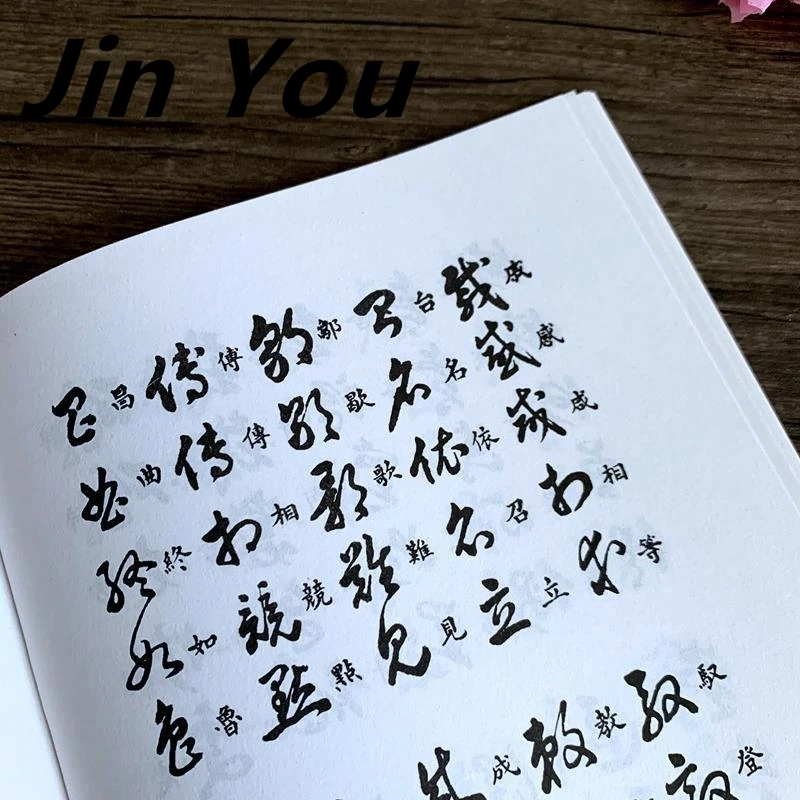 Jin You
感咸相等
台名依召立
歇歌難見
傅傳相競點
昌曲終如魯
馭登
教
成